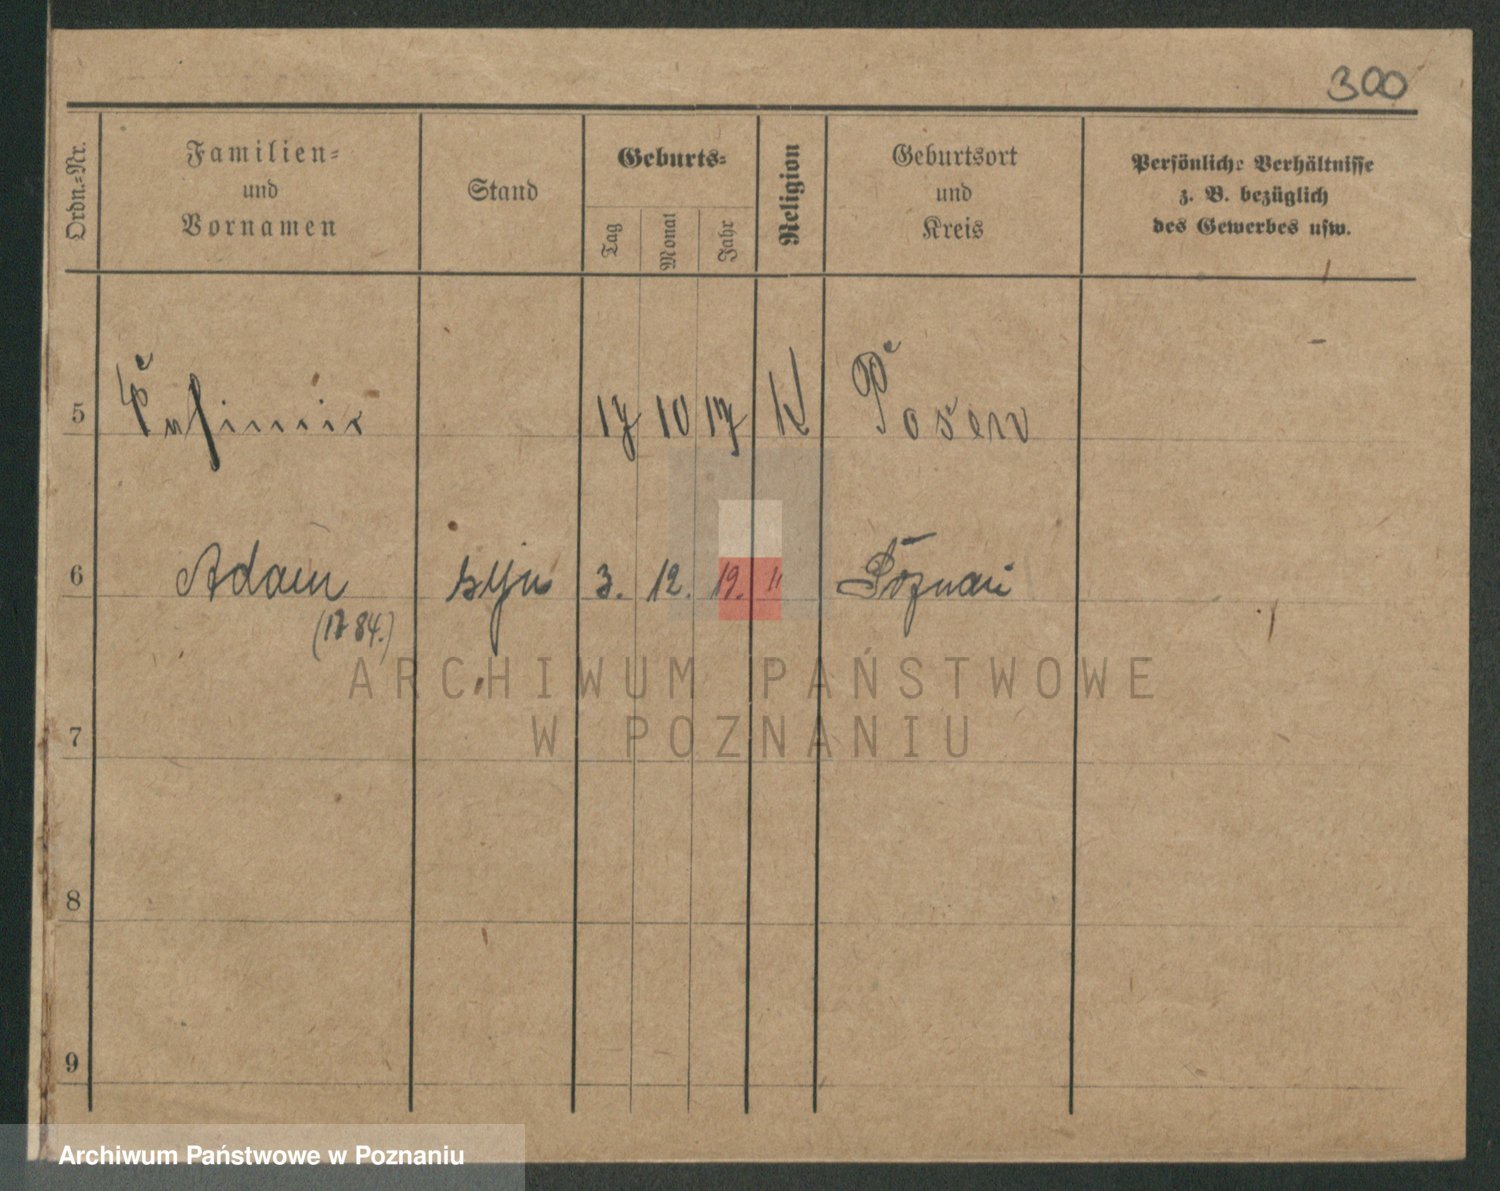 300
Ordn.=Nr.
Familien=
und
Vornamen
Stand
Geburts=
Tag
Monat
Jahr
Religion
Geburtsort
und
Kreis
Persönliche Verhältnisse
z. B. bezüglich
des Gewerbes usw.
5 17 10 17 K Posen
6 Adam syn 3. 12. 19. " Poznań
(1784.)
ARCHIWUM PAŃSTWOWE
W POZNANIU
7
8
9
Archiwum Państwowe w Poznaniu